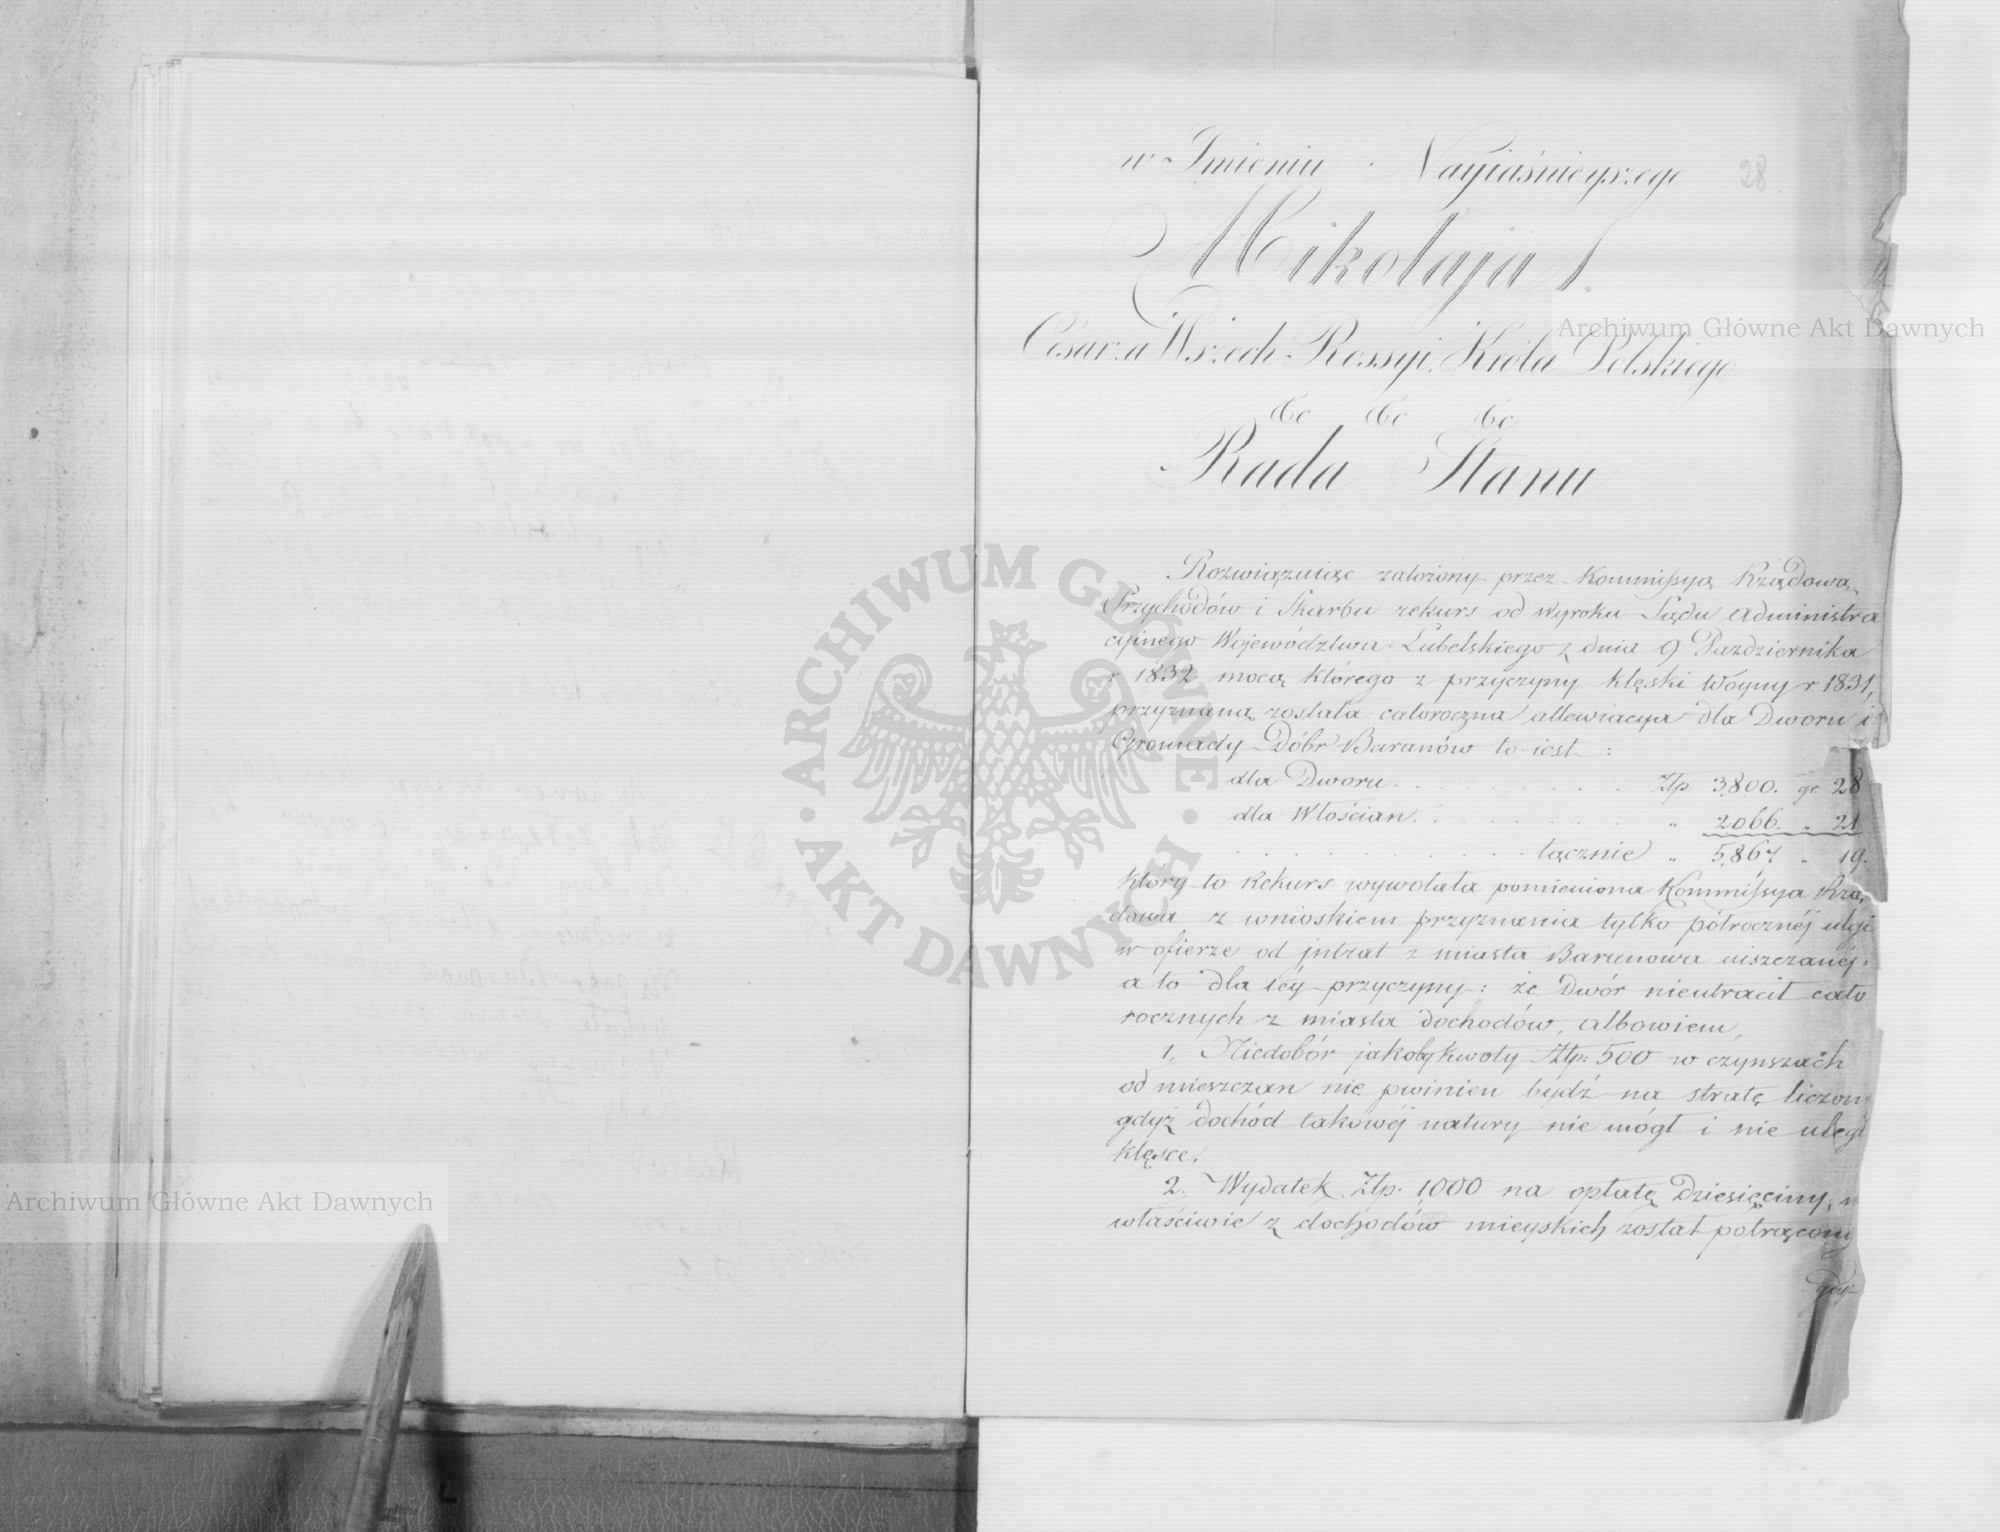 w Imieniu Nayiaśnieyszego
28.
Mikołaja I.
Cesarza Wszech Rossyi, Króla Polskiego
&c &c &c
Rada Stanu
Rozwiązuiąc założony przez Kommissyą Rządową
Przychodów i Skarbu rekurs od wyroku Sądu Administra
cyinego Województwa Lubelskiego z dnia 9 Pazdziernika
r 1832 mocą którego z przyczyny klęski Woyny r 1831,
przyznaną została całoroczna allewiacya dla Dworu i
Gromady Dóbr Baranów to iest :
dla Dworu . . . . . . . . Złp 3,800. gr. 28
dla Włościan . . . . . . . „ 2066. „ 21
. . . . . . . . . łącznie „ 5,867 „ 19.
który to Rekurs wywołała pomieniona Kommissya Rzą
dowa z wnioskiem przyznania tylko półrocznéj ulgi
w ofierze od jntrat z miasta Baranowa uiszczanéj,
a to dla téy przyczyny: że Dwór nieutracił cało
rocznych z miasta dochodów, albowiem,
1, Niedobór jakoby kwoty Złp: 500 w czynszach
od mieszczan nie pwinien bydź na stratę liczony
gdyż dochód takowéj natury nie mógł i nie uległ
klęsce.
2. Wydatek Złp. 1,000 na opłatę Dziesięciny, n
właściwie z dochodów mieyskich został potrącony
gdyż
Archiwum Główne Akt Dawnych
Archiwum Główne Akt Dawnych
ARCHIWUM GŁÓWNE AKT DAWNYCH